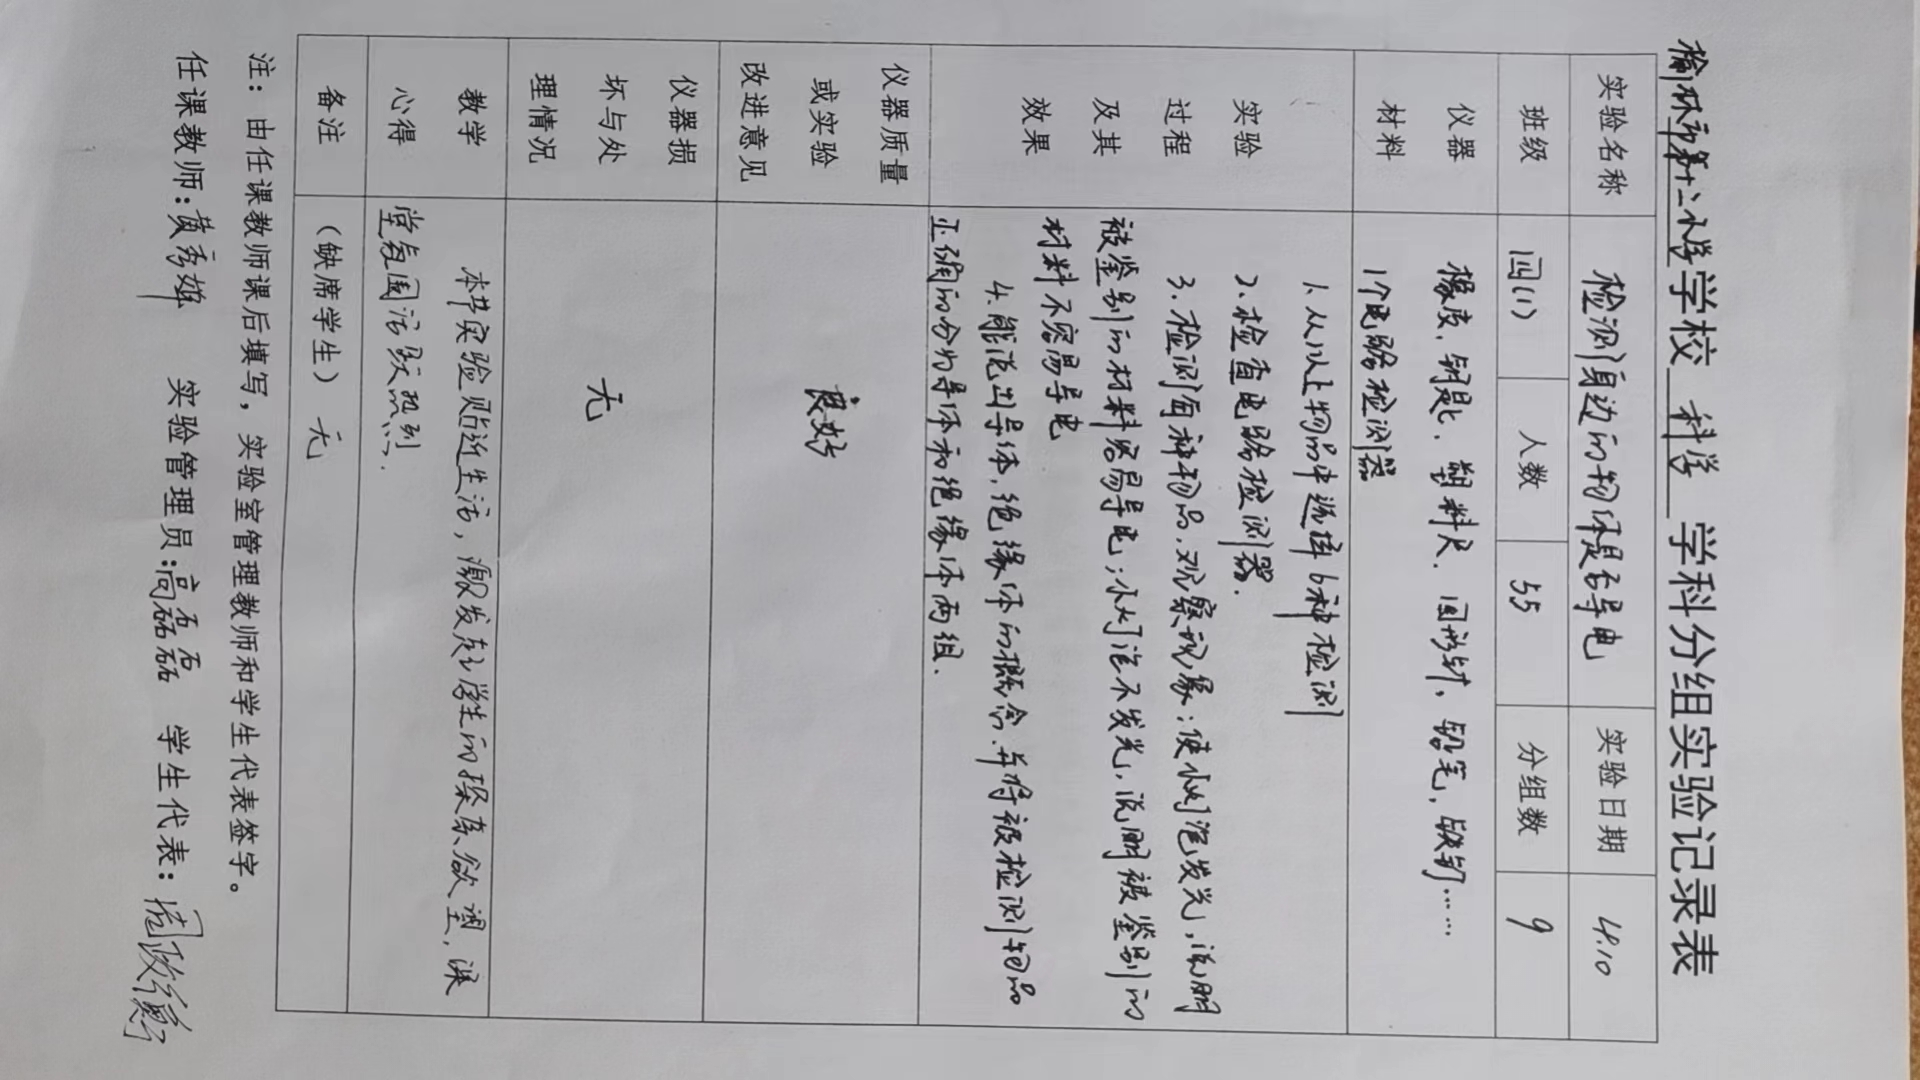 榆林市第十二小学学校 科学 学科分组实验记录表
实验名称 检测身边的物体是否导电 实验日期 4.10
班级 四(1) 人数 55 分组数 9
仪器材料 橡皮、钥匙、塑料尺、回形针、铅笔、铁钉……
1个电路检测器
实验过程及其效果
1.从以上物品中选择6种检测
2、检查电路检测器.
3、检测每种物品,观察现象:使小灯泡发光,说明
被鉴别的材料容易导电;小灯泡不发光,说明被鉴别的
材料不容易导电
4.能说出导体,绝缘体的概念.并将被检测物品
正确的分为导体和绝缘体两组.
仪器质量或实验改进意见 良好
仪器损坏与处理情况 无
教学心得 本节实验贴近生活,激发起学生的探索欲望,课
堂氛围活跃热烈.
备注 (缺席学生) 无
注:由任课教师课后填写,实验室管理教师和学生代表签字。
任课教师:黄秀雄 实验管理员:高磊磊 学生代表: